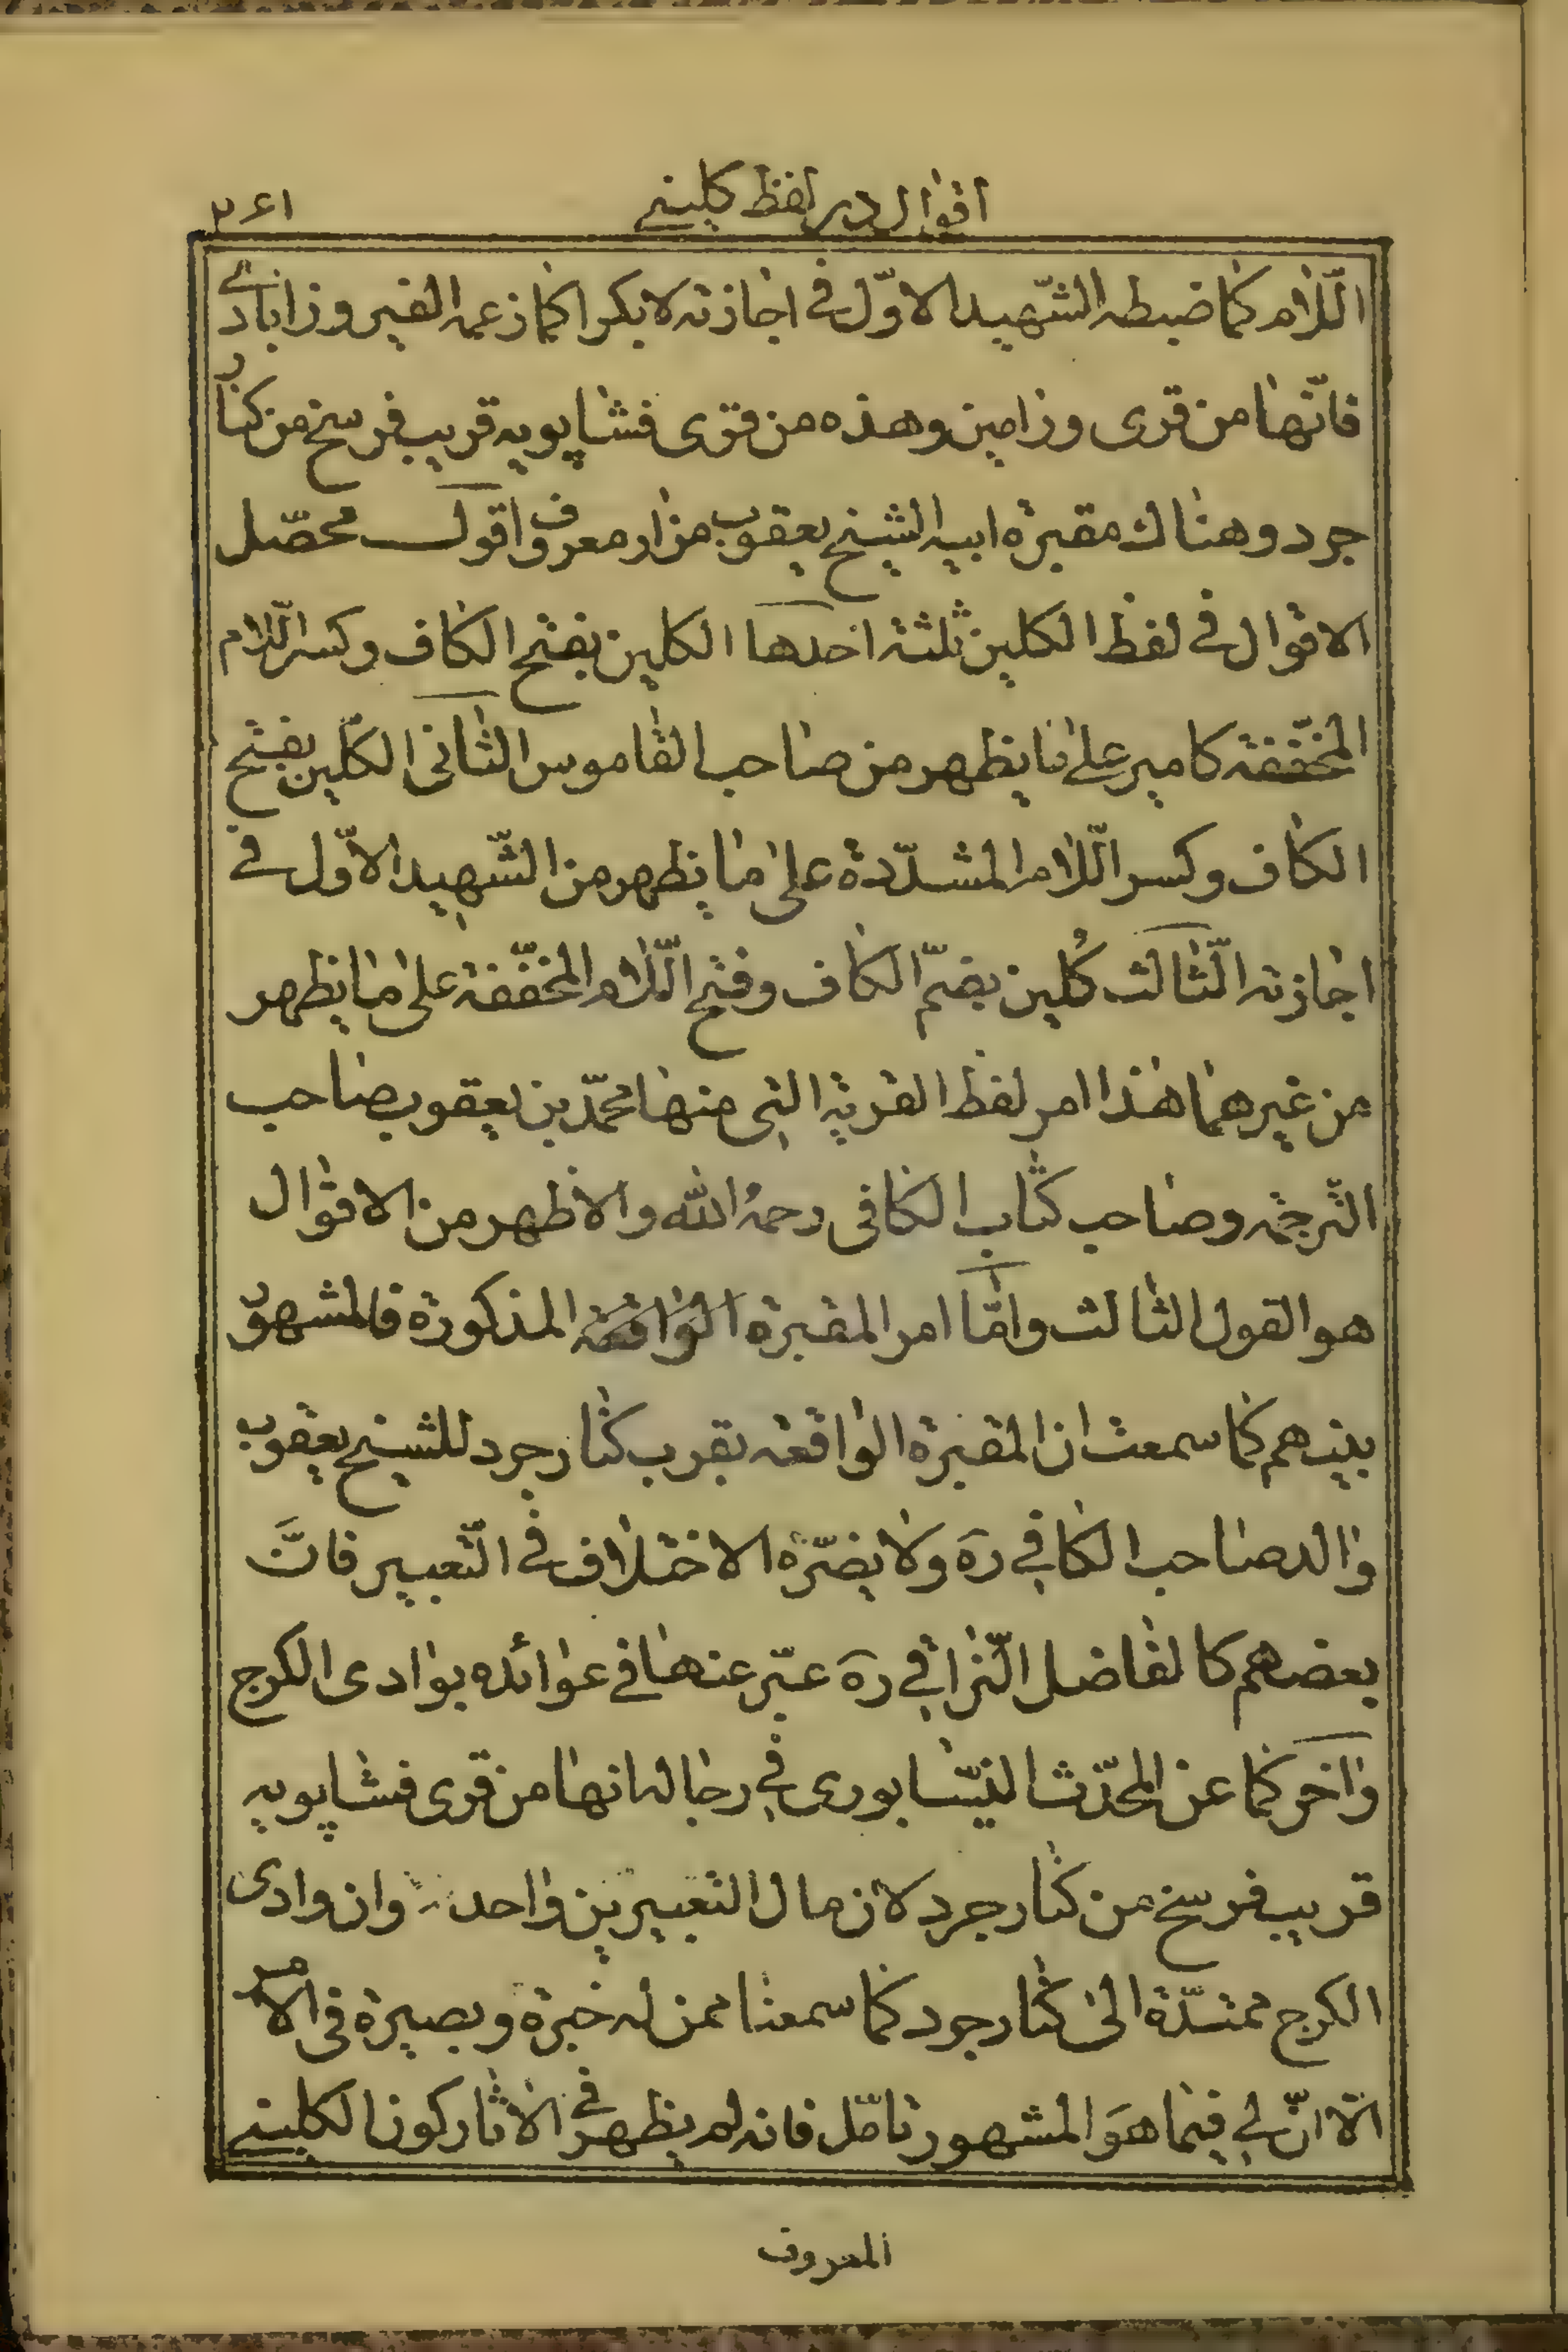 اقوال در لفظ کلینے
۳۶۱
اللّام کما ضبطه الشّهید الاوّل فی اجازته لا بکر اکما زعمه الفیروزابادے
فانّها من قری ورامین وهذه من قری فشاپویه قریب فرسخ من کنار
جرد وهناك مقبرة ابیه الشیخ یعقوب مزار معروف اقول محصّل
الاقوال فی لفظ الکلین ثلثة احدها الکلین بفتح الکاف وکسر اللّام
المخفّفة کامیر علی ما یظهر من صاحب القاموس الثانی الکلّین بفتح
الکاف وکسر اللّام المشدّدة علی ما یظهر من الشّهید الاوّل فی
اجازته الثّالث کُلین بضمّ الکاف وفتح اللّام المخفّفة علی ما یظهر
من غیرهما هذا امر لفظ القریة التی منها محمّد بن یعقوب صاحب
التّرجمة وصاحب کتاب الکافی رحمه الله والاظهر من الاقوال
هو القول الثالث وامّا امر المقبرة الواقعة المذکورة فالمشهور
بینهم کما سمعت ان المقبرة الواقعة بقرب کنار جرد للشیخ یعقوب
والد صاحب الکافی ره ولا یضرّه الاختلاف فی التّعبیر فانَّ
بعضهم کالفاضل النّراقی ره عبّر عنها فی عوائده بوادی الکرج
واخر کما عن المحدّث النیّسابوری فی رجاله انها من قری فشاپویه
قریب فرسخ من کنار جرد لان مال التعبیرین واحد وان وادی
الکرج ممتدّة الی کنار جرد کما سمعنا ممن له خبرة وبصیرة فی الامر
الّا انّ لی فیما هوَ المشهور تامّل فانه لم یظهر فی الاثار کون الکلینے
المعروف